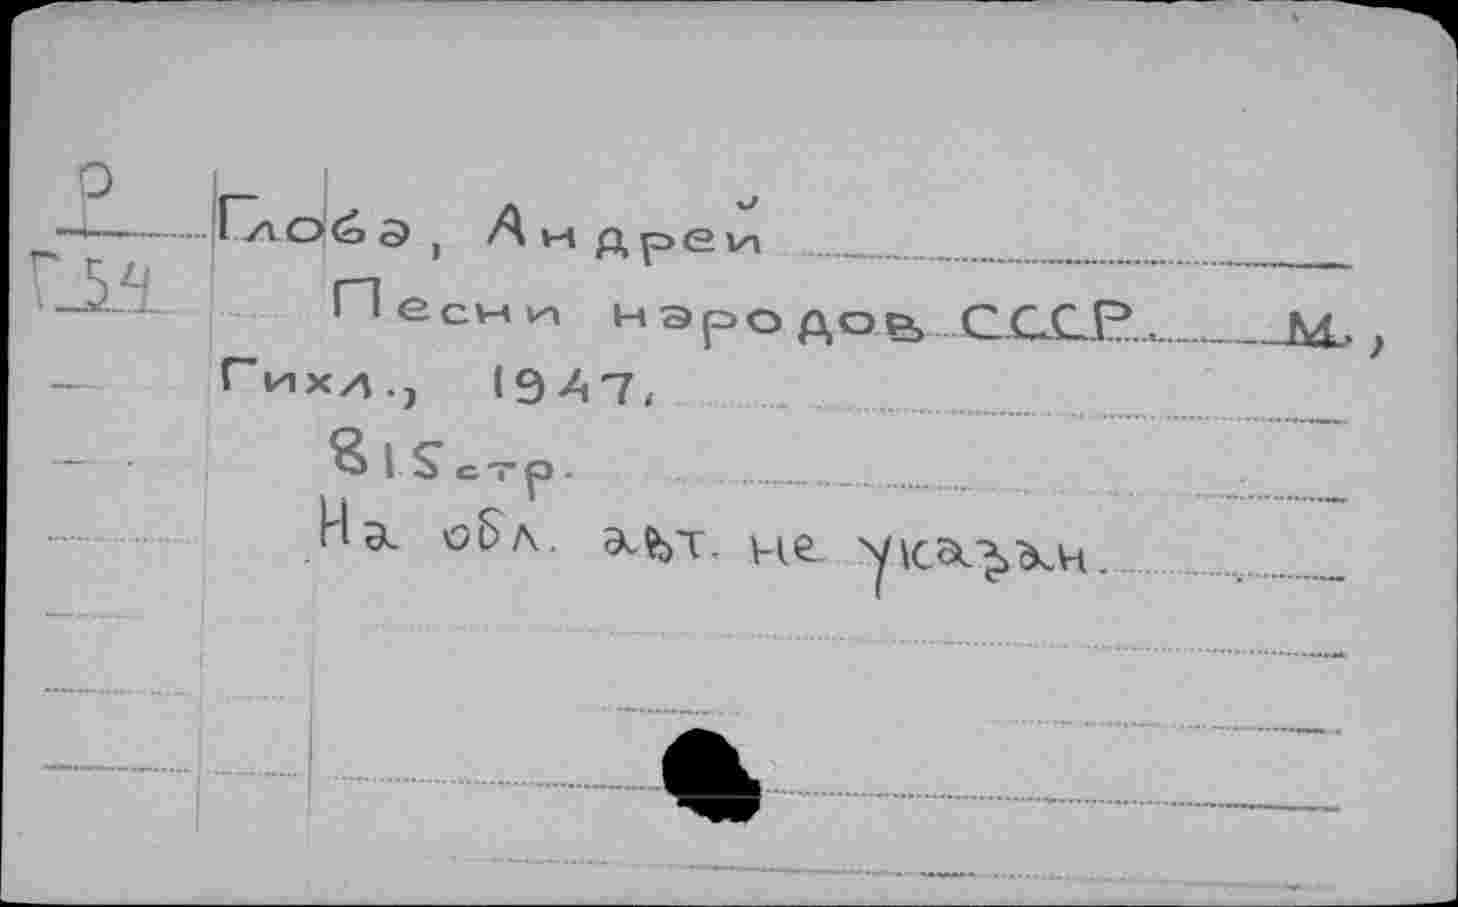 Р
Г54
Глоба, Андрей
Песни народов СССР. М.,
Гихл., 1947,
815 стр.
На обл. авт. не указан.